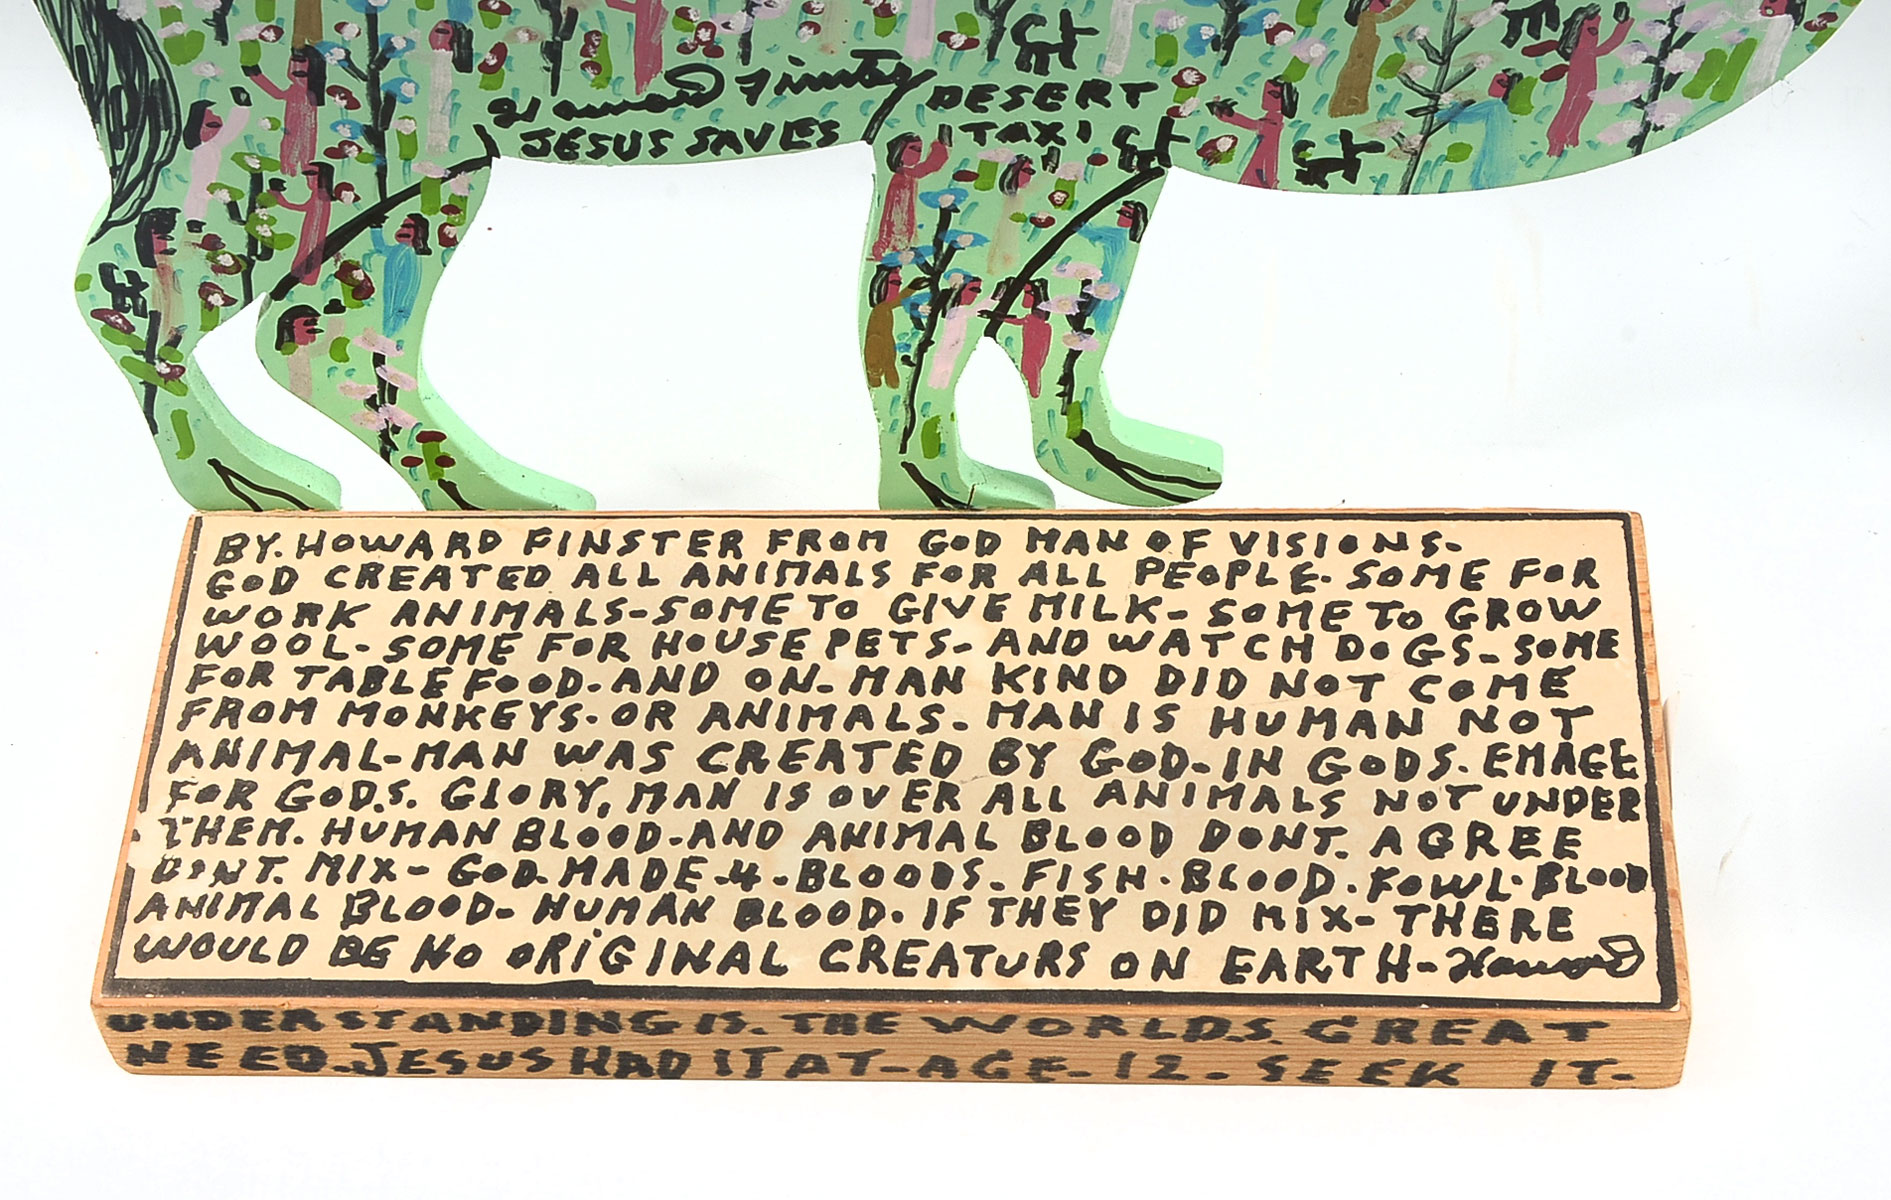 Howard Finster
JESUS SAVES
DESERT
TAXI
BY. HOWARD FINSTER FROM GOD MAN OF VISIONS.
GOD CREATED ALL ANIMALS FOR ALL PEOPLE. SOME FOR
WORK ANIMALS-SOME TO GIVE MILK- SOME TO GROW
WOOL- SOME FOR HOUSE PETS- AND WATCH DOGS- SOME
FOR TABLE FOOD. AND ON- MAN KIND DID NOT COME
FROM MONKEYS. OR ANIMALS- MAN IS HUMAN NOT
ANIMAL-MAN WAS CREATED BY GOD-IN GODS. EMAGE
FOR GOD.S. GLORY, MAN IS OVER ALL ANIMALS NOT UNDER
THEM. HUMAN BLOOD-AND ANIMAL BLOOD DONT. AGREE
DONT. MIX- GOD. MADE-4-BLOODS- FISH. BLOOD. FOWL. BLOOD
ANIMAL BLOOD- HUMAN BLOOD. IF THEY DID MIX- THERE
WOULD BE NO ORIGINAL CREATURS ON EARTH- Howard
UNDERSTANDING IS. THE WORLD.S. GREAT
NEED. JESUS HAD IT AT-AGE-12. SEEK IT.